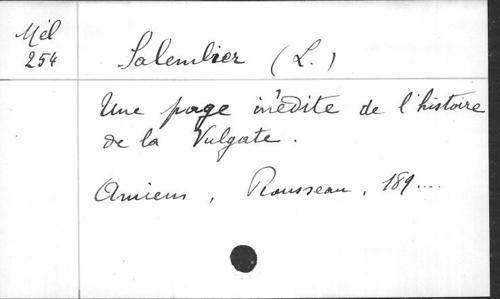 Mél
254
Salembier (L.)
Une page inédite de l'histoire
de la Vulgate.
Amiens, Rousseau, 189....